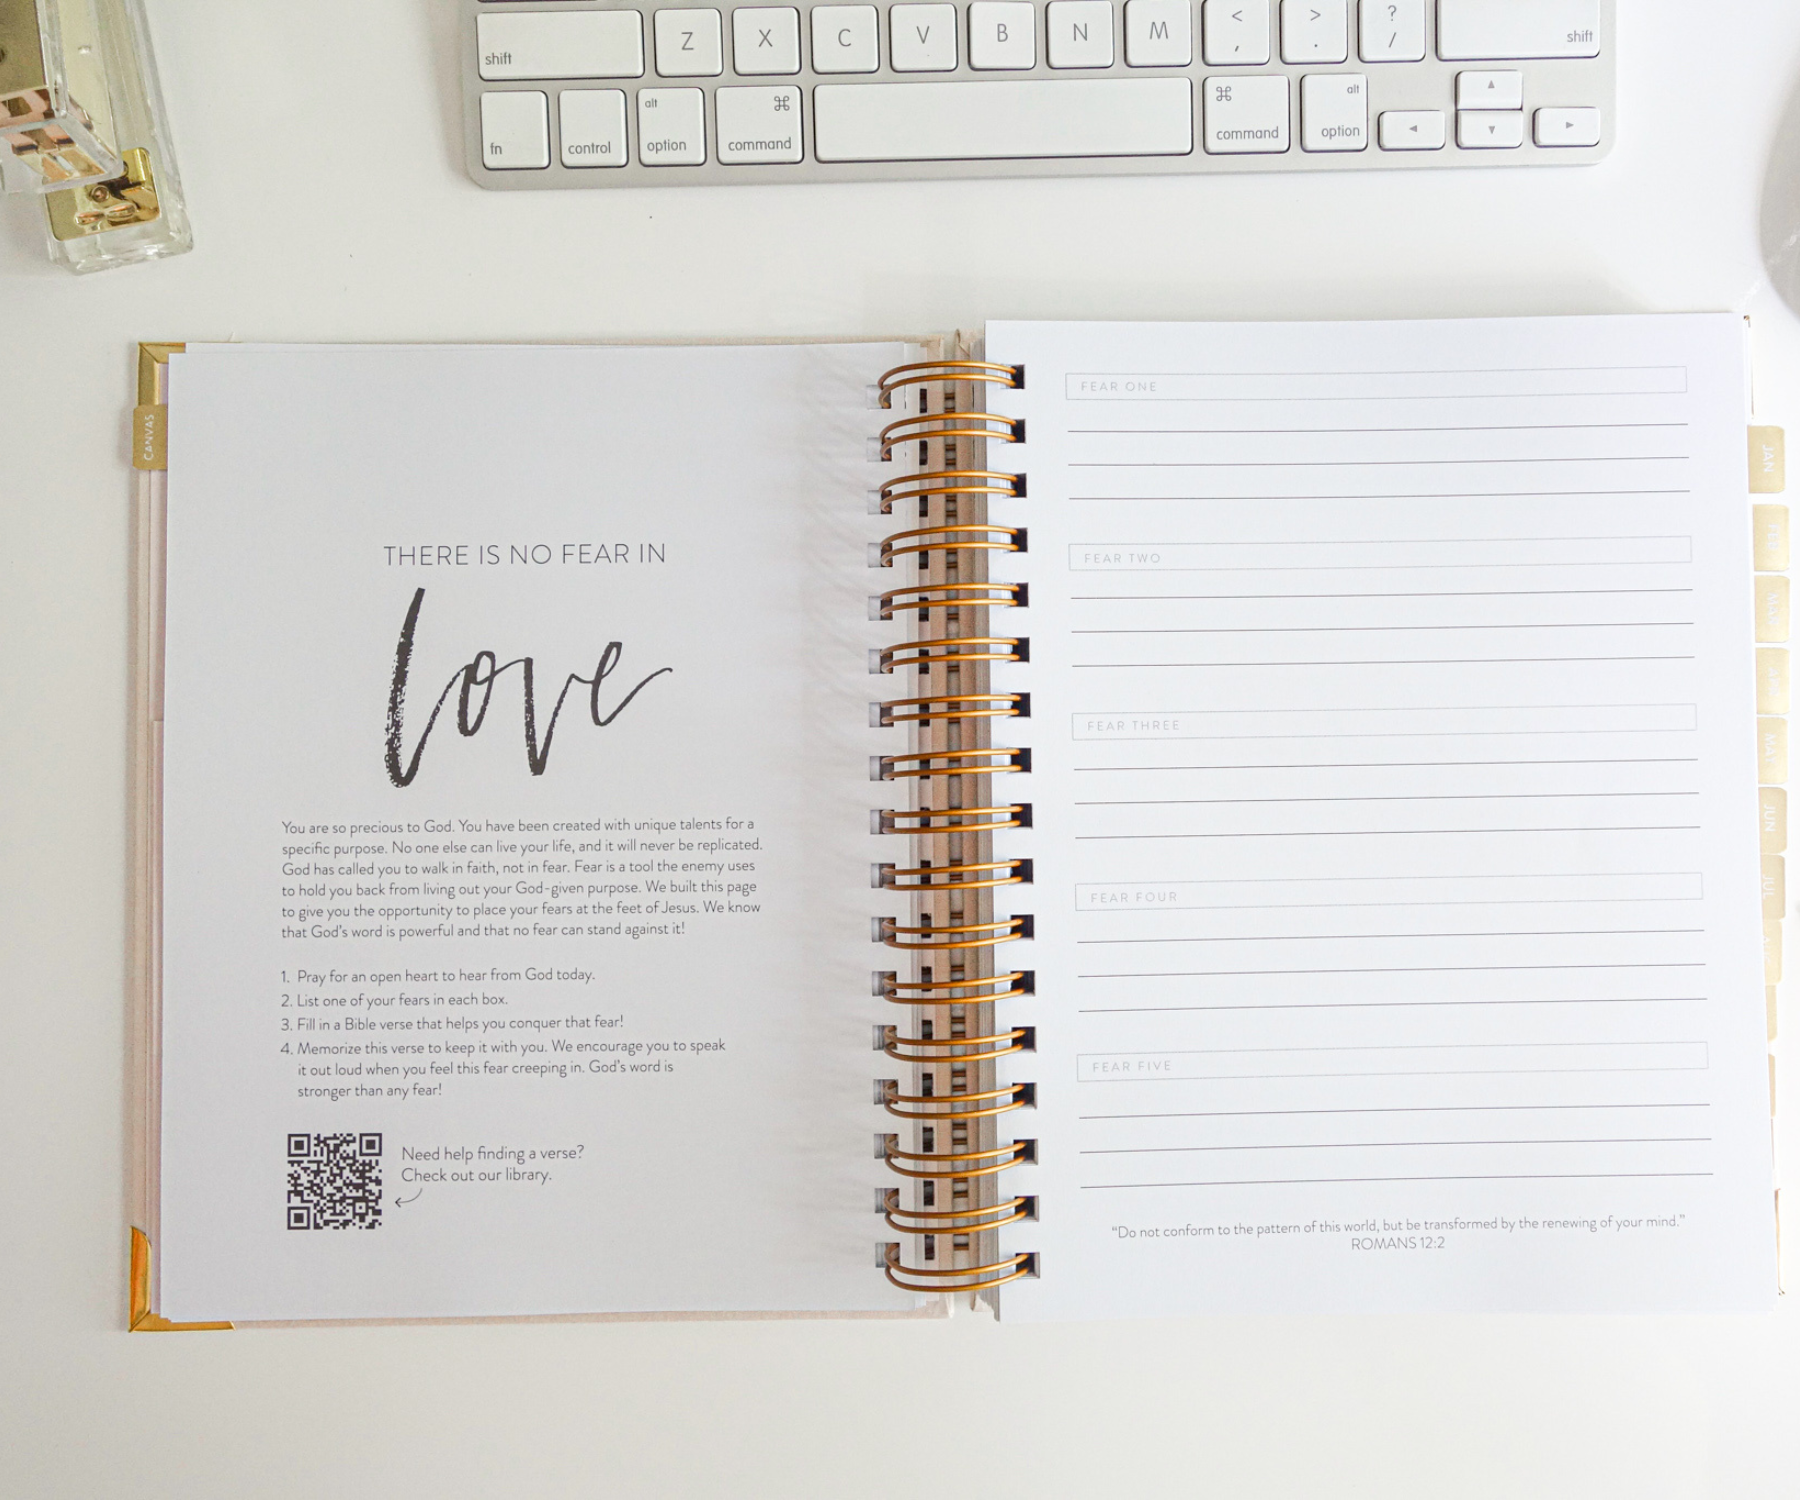 Z X C V B N M < , > . ? /
shift
shift
fn
control
alt
option
⌘
command
⌘
command
alt
option
CANVAS
THERE IS NO FEAR IN
love
You are so precious to God. You have been created with unique talents for a
specific purpose. No one else can live your life, and it will never be replicated.
God has called you to walk in faith, not in fear. Fear is a tool the enemy uses
to hold you back from living out your God-given purpose. We built this page
to give you the opportunity to place your fears at the feet of Jesus. We know
that God's word is powerful and that no fear can stand against it!
1. Pray for an open heart to hear from God today.
2. List one of your fears in each box.
3. Fill in a Bible verse that helps you conquer that fear!
4. Memorize this verse to keep it with you. We encourage you to speak
it out loud when you feel this fear creeping in. God's word is
stronger than any fear!
Need help finding a verse?
Check out our library.
FEAR ONE
FEAR TWO
FEAR THREE
FEAR FOUR
FEAR FIVE
"Do not conform to the pattern of this world, but be transformed by the renewing of your mind."
ROMANS 12:2
JAN
FEB
MAR
APR
MAY
JUN
JUL